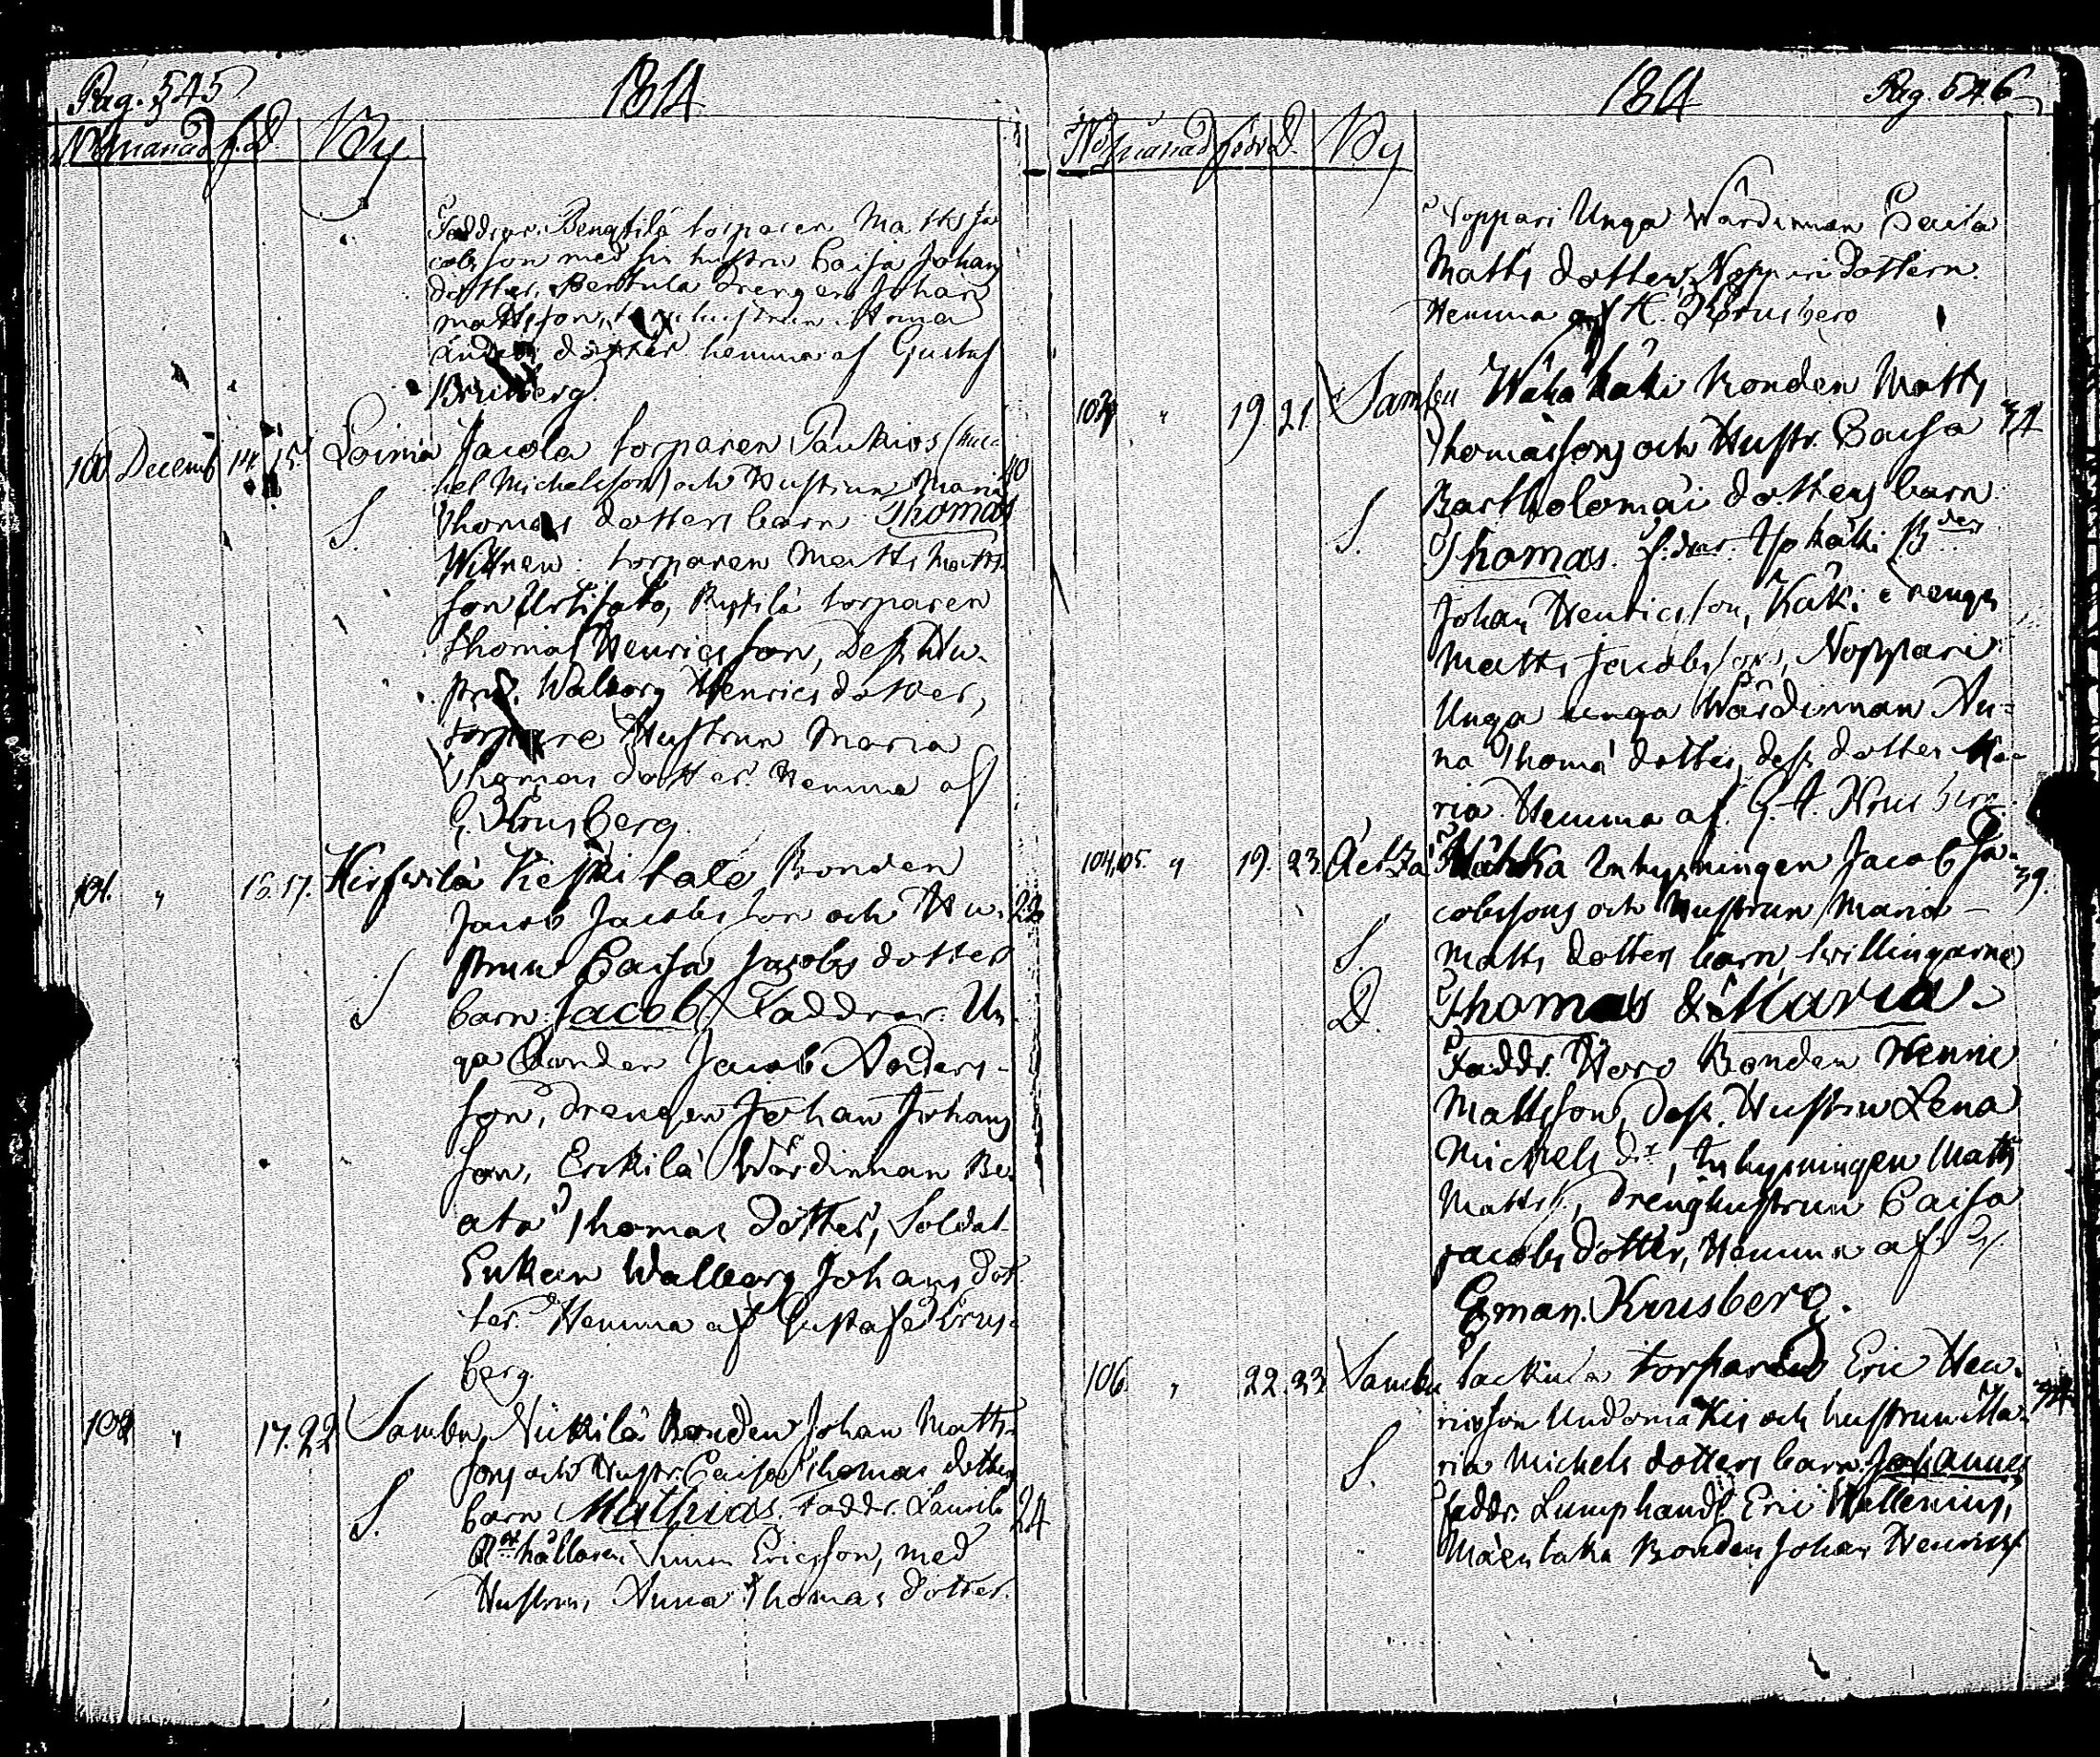 Pag. 545
1814
No manad f. D By
Faddrar. Bengtilä torparen Matts Ja
cobsson med sin hustru Caisa Johans
dotter, Bertula drengen Johan
Mattsson, hustrun Anna
Anders dotter hemma af Gustaf
Krusberg.
100 Decemb 14. 15. Loima Jacola torparen Paukios (Mic
hel Michelsson) och Hustrun Maria 40
S. Thomas dotters barn Thomas
Wittnen: torparen Matts Matts
son Urtisato, Ryssilä torparen
Thomas Henricsson, Dess Hu-
stru. Walborg Henrics dotter,
torpare Hustrun Maria
Thomas dotter. Hemma af
G. Krusberg.
101. " 16. 17. Hirswilä Keskitalo Bonden
Jacob Jacobsson och Hu- 22
S strun Caisa Jacobs dotter
barn: Jacob. Faddrar. Un
ga Bonden Jacob Anders-
son, drengen Johan Johans
son, Erckilä Wärdinnan Be-
ata Thomas dotter, Soldat
Enkan Walborg Johans dot
ter. Hemma af Gustaf Krus-
berg.
102 " 17. 22 Sambu, Nickilä Bonden Johan Matts-
sons och Hustr. Caisa Thomas dotters
S. barn Mathias. Faddr. Laurila
hållaren Simon Ericsson, med 24
Hustrun, Anna Thomas dotter.
1814 Pag. 546
No manad född D. By
Noppari Unga Wärdinnan Caisa
Matts dotter, Noppari dottern
Hemma af K. Krusberg
103 " 19. 21. Sambu Wähä Käki Bonden Matts 34
Thomassons och Hustr. Caisa
Bartholomai dotters barn
S. Thomas. f:drar. Yso Käki Bden
Johan Henricsson, Käki drengen
Matts Jacobsson, Noppari
Unga unga Wärdinnan An-
na Thoma dotter, dess dotter Ma-
ria. Hemma af. G. A. Krusberg.
104, 105. " 19. 23. Äetzä Hähkä Inhysningen Jacob Ja- 39.
cobssons och Hustrun Maria
S Matts dotters barn, twillingarne
D. Thomas & Maria.
Faddr. Hero Bonden Henric
Mattsson, dess Hustru Lena
Michels dr, Inhysningen Matts
Mattss., Drenghustrun Caisa
Jacobs dotter, Hemma af
Eman. Krusberg.
106 " 22. 23 Sambu Jackula torparen Eric Hen-
ricsson Undoma Kis och hustrun Ma-
S. ria Michels dotters barn Johannes
faddr. Lumphandl. Eric Wallenius,
Mäentaka Bonden Johan Henricss